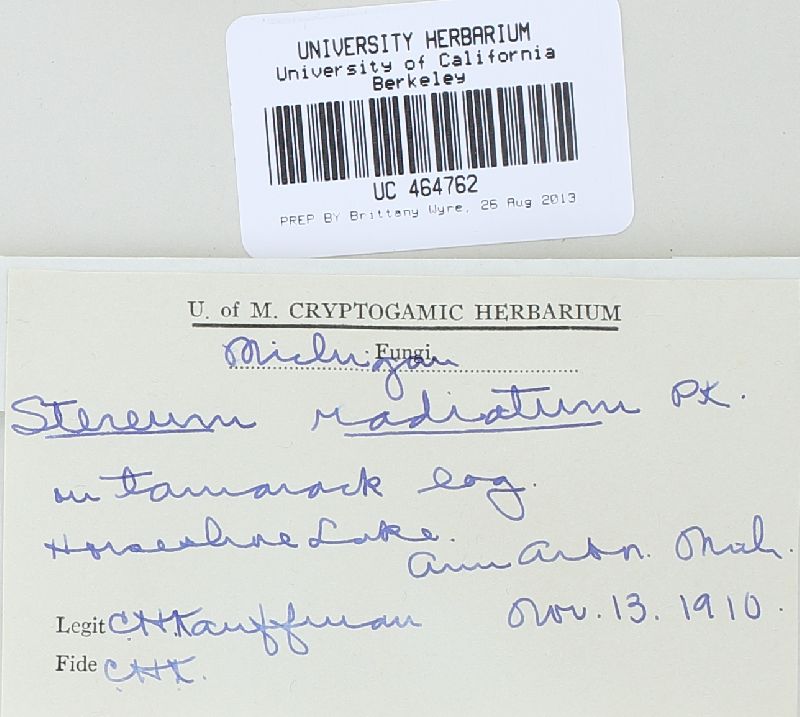 UNIVERSITY HERBARIUM
University of California
Berkeley
UC 464762
PREP BY Brittany Wyre, 26 Aug 2013
U. of M. CRYPTOGAMIC HERBARIUM
Fungi
Michigan
Stereum radiatum Pk.
on tamarack log.
Horseshoe Lake.
Ann Arbor. Mich.
Legit C.H.Kauffman Nov. 13. 1910.
Fide C.H.K.